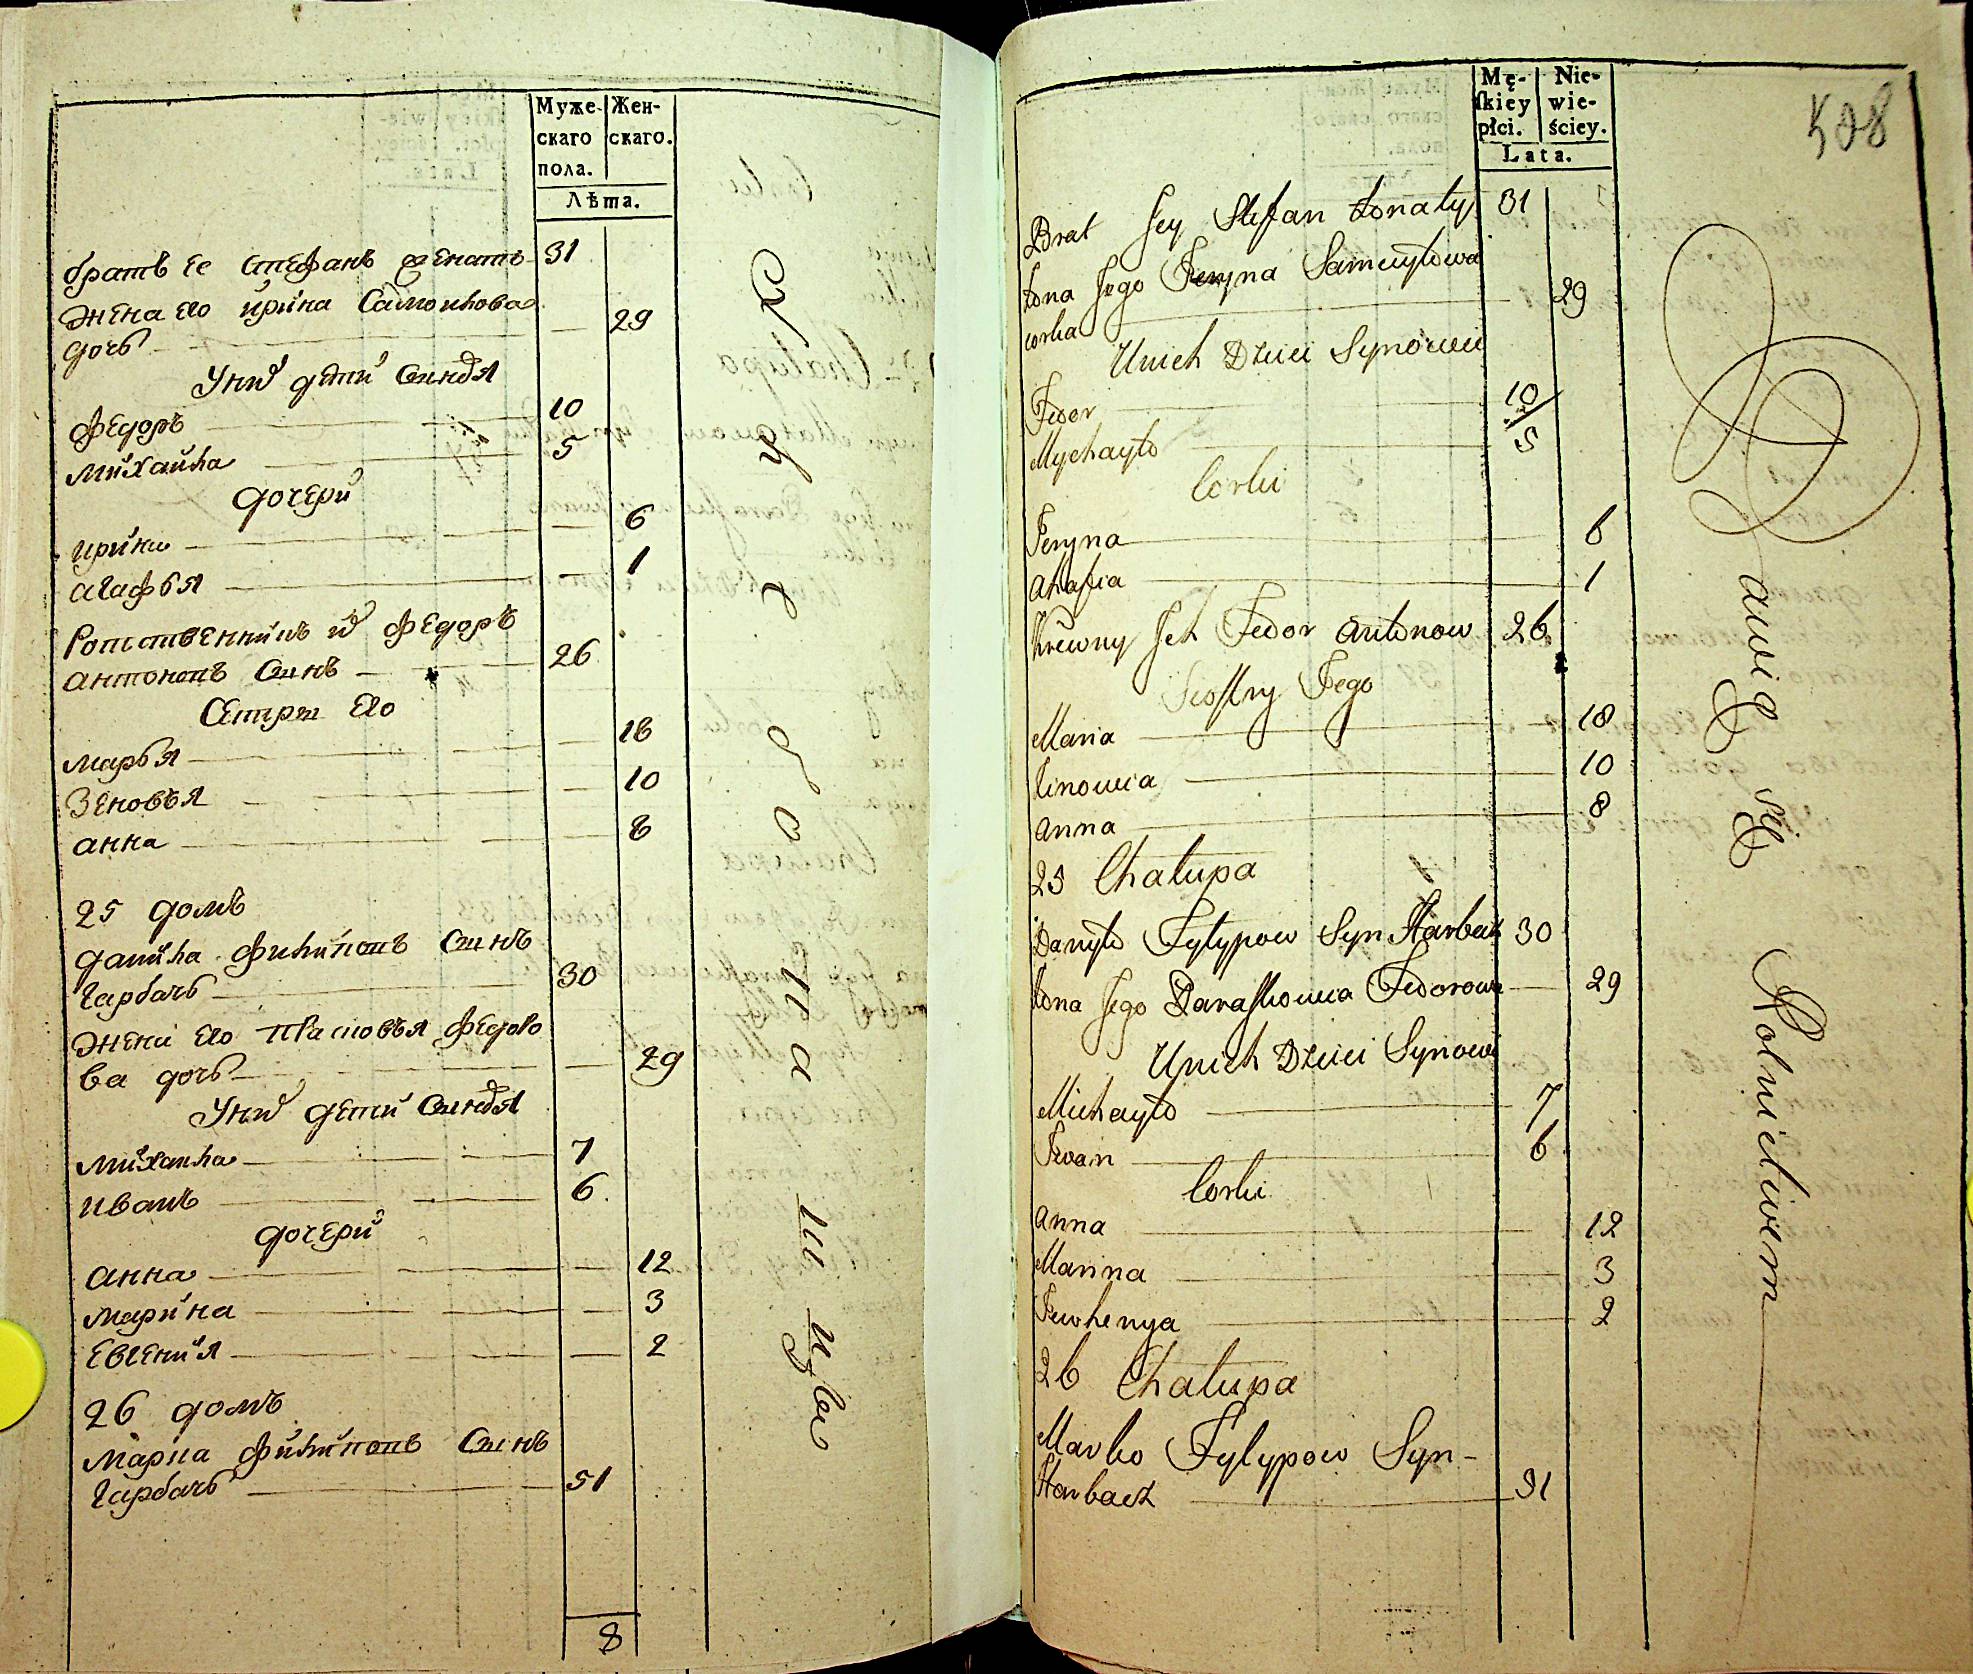 Муже-
скаго
пола.
Жен-
скаго.
Лѣта.
братъ ее стефанъ женатъ 31
жена его ирина Самоилова
дочь 29
У них дети сыновя
Федоръ 10
михайла 5
дочери
ирина 6
агафья 1
Родственникъ их Федоръ
антоновъ сынъ 26
Сестры его
марья 18
Зеновья 10
анна 8
25 домъ
данила Филиповъ сынъ
Гарбачъ 30
жена его прасковья Федоро
ва дочь 29
У них дети сыновя
михаила 7
иванъ 6
дочери
анна 12
марина 3
Евгения 2
26 домъ
марка Филиповъ сынъ
Гарбачъ 51
8
Mę-
skiey
płci.
Nie-
wie-
ściey.
Lata.
508
Brat Jey Stefan żonaty 31
żona Jego Jeryna Samuyłowa
corka 29
U nich Dzieci Synowie
Fedor 10
Mychayło 5
Corki
Jeryna 6
Ahafia 1
Krewny Jch Fedor Antonow 26
Siostry Jego
Maria 18
Zinowia 10
Anna 8
25 Chałupa
Danyło Fylypow Syn Harbacz 30
żona Jego Paraskowia Fedorowa 29
U nich Dzieci Synowie
Michayło 7
Iwan 6
Corki
Anna 12
Marina 3
Jewhenya 2
26 Chałupa
Marko Fylypow Syn-
Harbacz 51
bawią się Rolnictwem